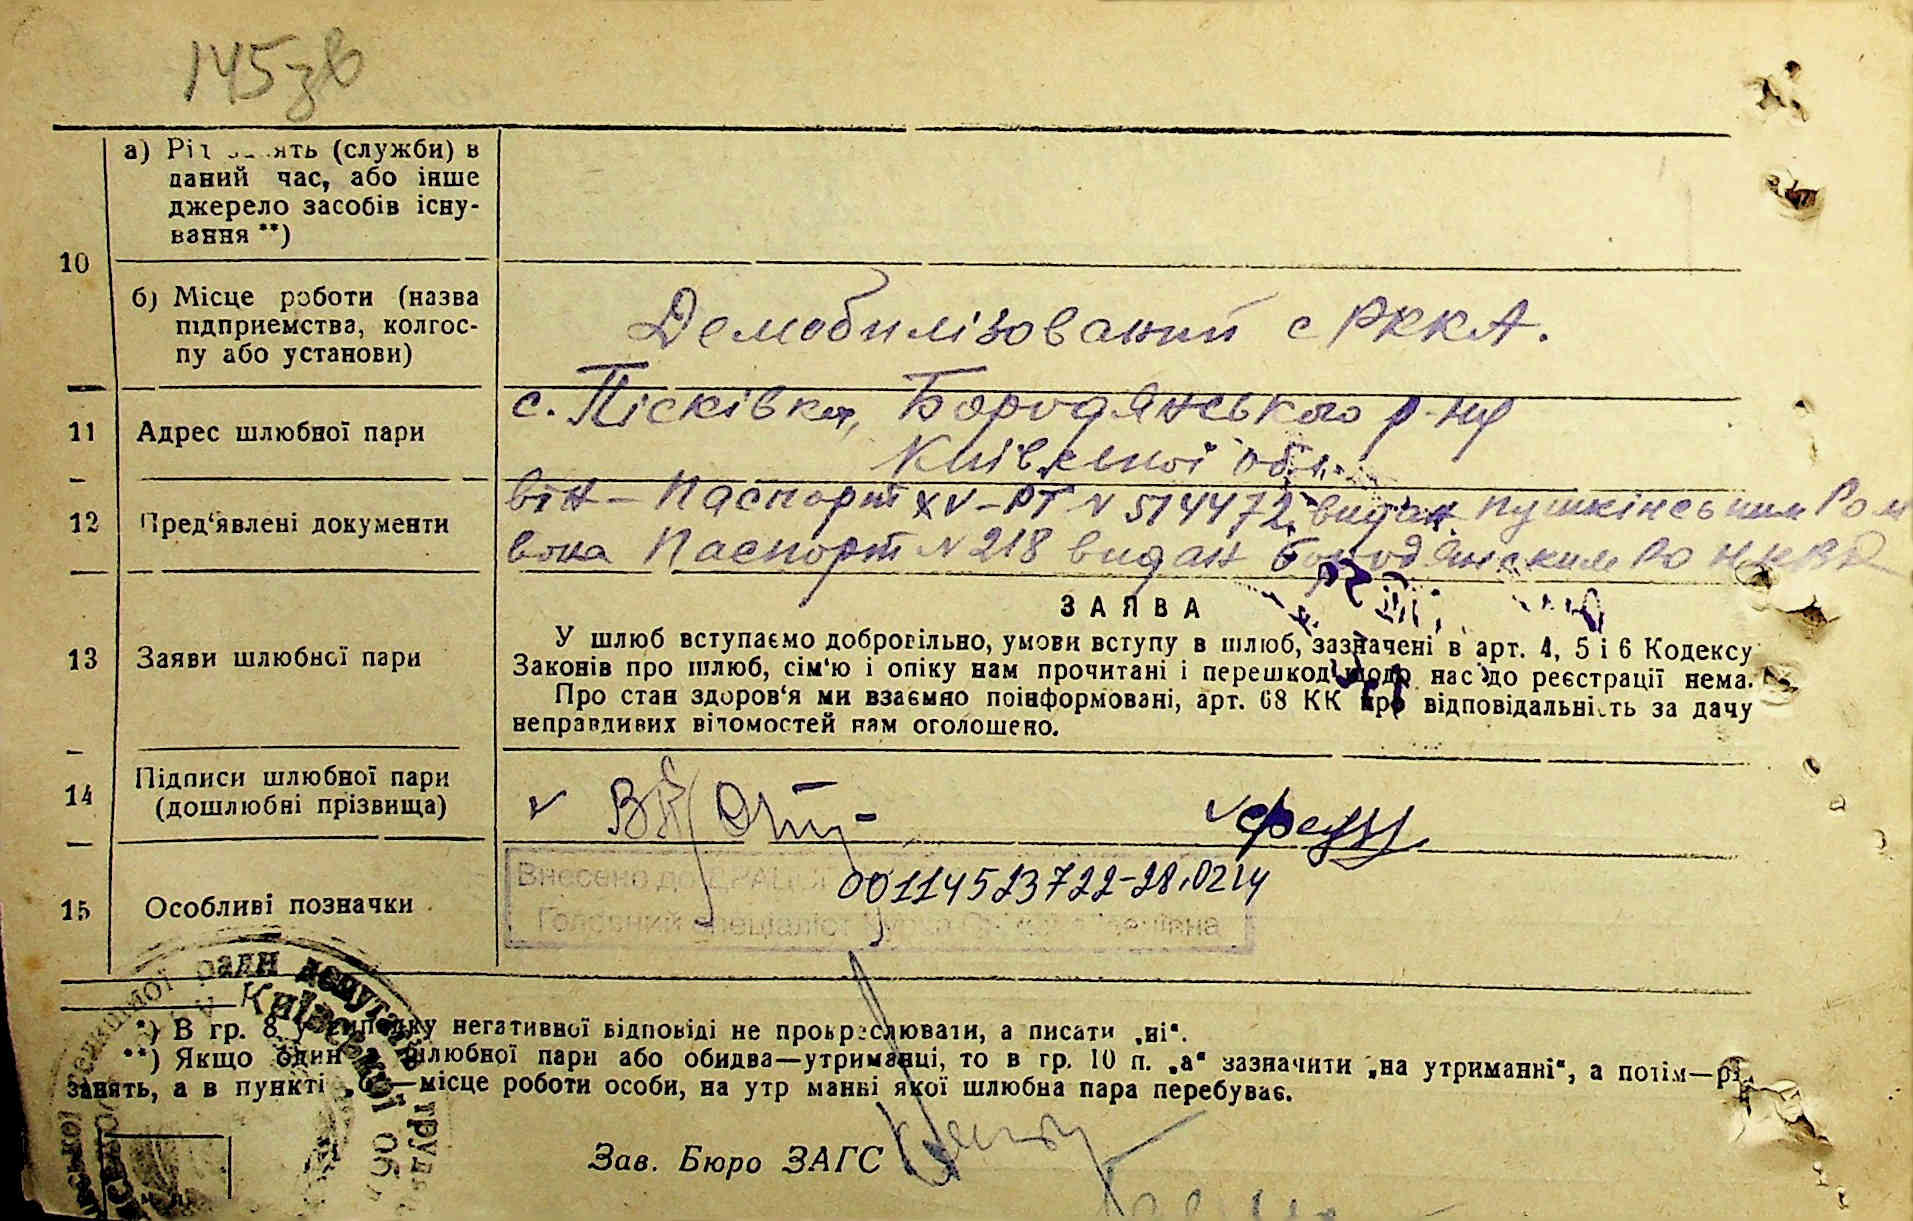 145зв
а) Рід занять (служби) в
даний час, або інше
джерело засобів існу-
вання **)
10
б) Місце роботи (назва
підприємства, колгос-
пу або установи)
Демобилізований с РККА.
11
Адрес шлюбної пари
с. Пісківка, Бородянського р-ну
Київської обл.
12
Пред'явлені документи
він – Паспорт XV–РТ N 514472 видан Пушкінським РОМ
вона Паспорт N 218 видан Бородянским РО НКВД
13
Заяви шлюбної пари
ЗАЯВА
У шлюб вступаємо добровільно, умови вступу в шлюб, зазначені в арт. 4, 5 і 6 Кодексу
Законів про шлюб, сім'ю і опіку нам прочитані і перешкод щодо нас до реєстрації нема.
Про стан здоров'я ми взаємно поінформовані, арт. 68 КК про відповідальність за дачу
неправдивих відомостей нам оголошено.
14
Підписи шлюбної пари
(дошлюбні прізвища)
15
Особливі позначки
Внесено до ДРАЦСГ
00114523722-28.0214
Головний спеціаліст
*) В гр. 8 у випадку негативної відповіді не прокреслювати, а писати „ні“.
**) Якщо один з шлюбної пари або обидва—утриманці, то в гр. 10 п. „а“ зазначити „на утриманні“, а потім—рід
занять, а в пункті „б“—місце роботи особи, на утриманні якої шлюбна пара перебуває.
ради депутатів труд
Київської обл
Зав. Бюро ЗАГС